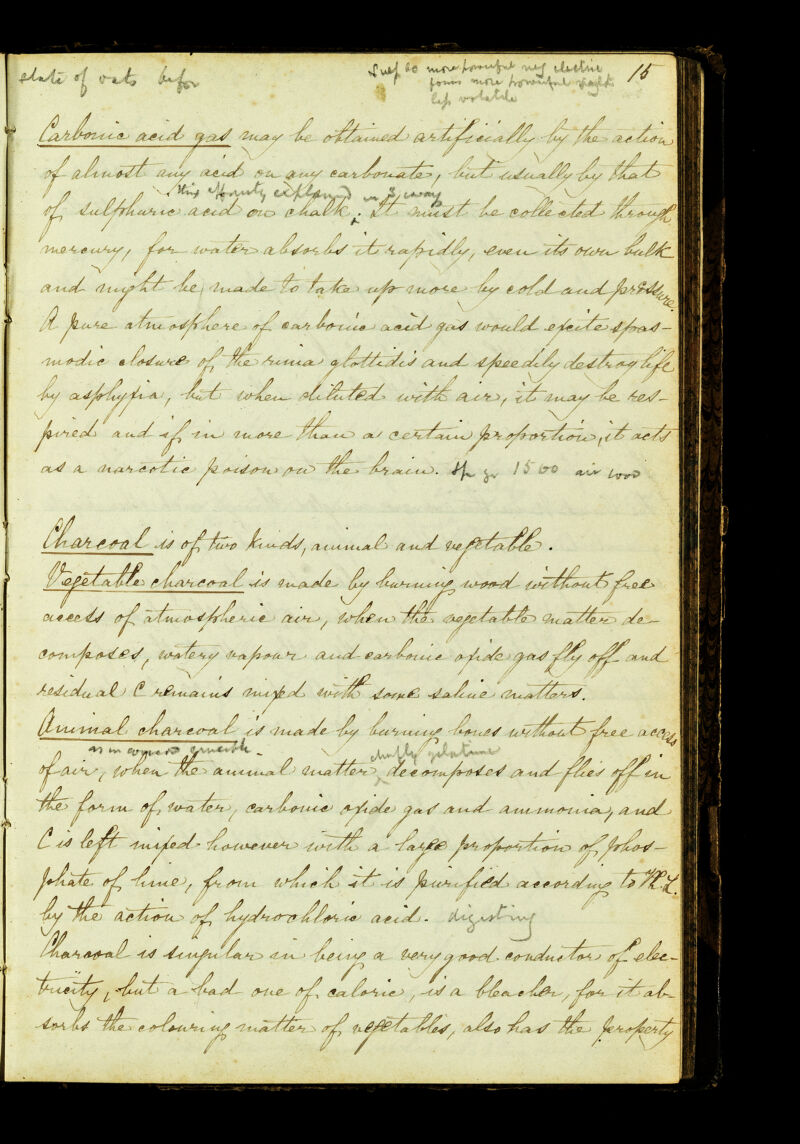 state of oats befor
Sulp ac more powerful neg electric 15
forms more powerful
less volatile
Carbonic acid gas may be obtained artificially by the action
of almost any acid on any carbonate, but usually by that
this affinity explained in 3 ways
of sulphuric acid on chalk. It must be collected through
mercury, for water absorbs it rapidly, even its own bulk
and might be made to take up more by cold and pressure.
A pure atmosphere of carbonic acid gas would excite spas-
modic closure of the rima glottidis and speedily destroy life
by asphyxia, but when diluted with air, it may be res-
pired and if in more than a certain proportion, it acts
as a narcotic poison on the brain. Sp gr 1500 air 1000
Charcoal is of two kinds, animal and vegetable.
Vegetable charcoal is made by burning wood without free
access of atmospheric air, when the vegetable matter de-
composes, watery vapour and carbonic oxide gas fly off and
residual C remains mixed with some saline matters.
Animal charcoal is made by burning bones without free access
as in covered crucible - chiefly gelatine
of air, when the animal matter decomposes and flies off in
the form of water, carbonic oxide gas and ammonia, and
C is left mixed however with a large proportion of phos-
phate of lime, from which it is purified according to P.L.
by the action of hydrochloric acid. digesting
Charcoal is singular in being a very good conductor of elec-
tricity, but a bad one of caloric, is a bleacher, for it ab-
sorbs the colouring matter of vegetables, also has the property